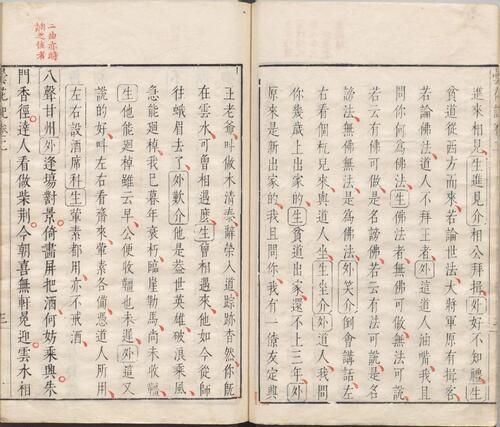 進來相見生進見介相公拜揖外好不知禮生
貧道從西方而來若論世法大將軍原有揖客
若論佛法道人不拜王者外這道人油嘴我且
問你何爲佛法生佛法者無佛可做無法可說
若云有佛可做是名謗佛若云有法可說是名
謗法無佛無法是爲佛法外笑介倒會講話左
右看個杌兒來與道人坐生坐介外道人我問
你幾歲上出家的生貧道出家還不上三年外
原來是新出家的我且問你我有一僚友定興
王老爺叫做木清泰辭榮入道踪跡杳然你旣
在雲水可曾相遇麽生曾相遇來他如今從師
往蛾眉去了外歎介他是盖世英雄破浪乗風
急能廻棹我已暮年衰朽臨崖勒馬尚未收韁
生他能廻棹雖云早公便收韁也未遲外這又
說的好叫左右看齋來葷素各備憑道人所用
左右設酒席科生葷素都用亦不戒酒
二曲亦時
詞之佳者
八聲甘州外逢塲對景倚畵屏把酒何妨乗興朱
門香徑達人看做柴荆今朝喜無軒冕迎雲水相
曇花記
三